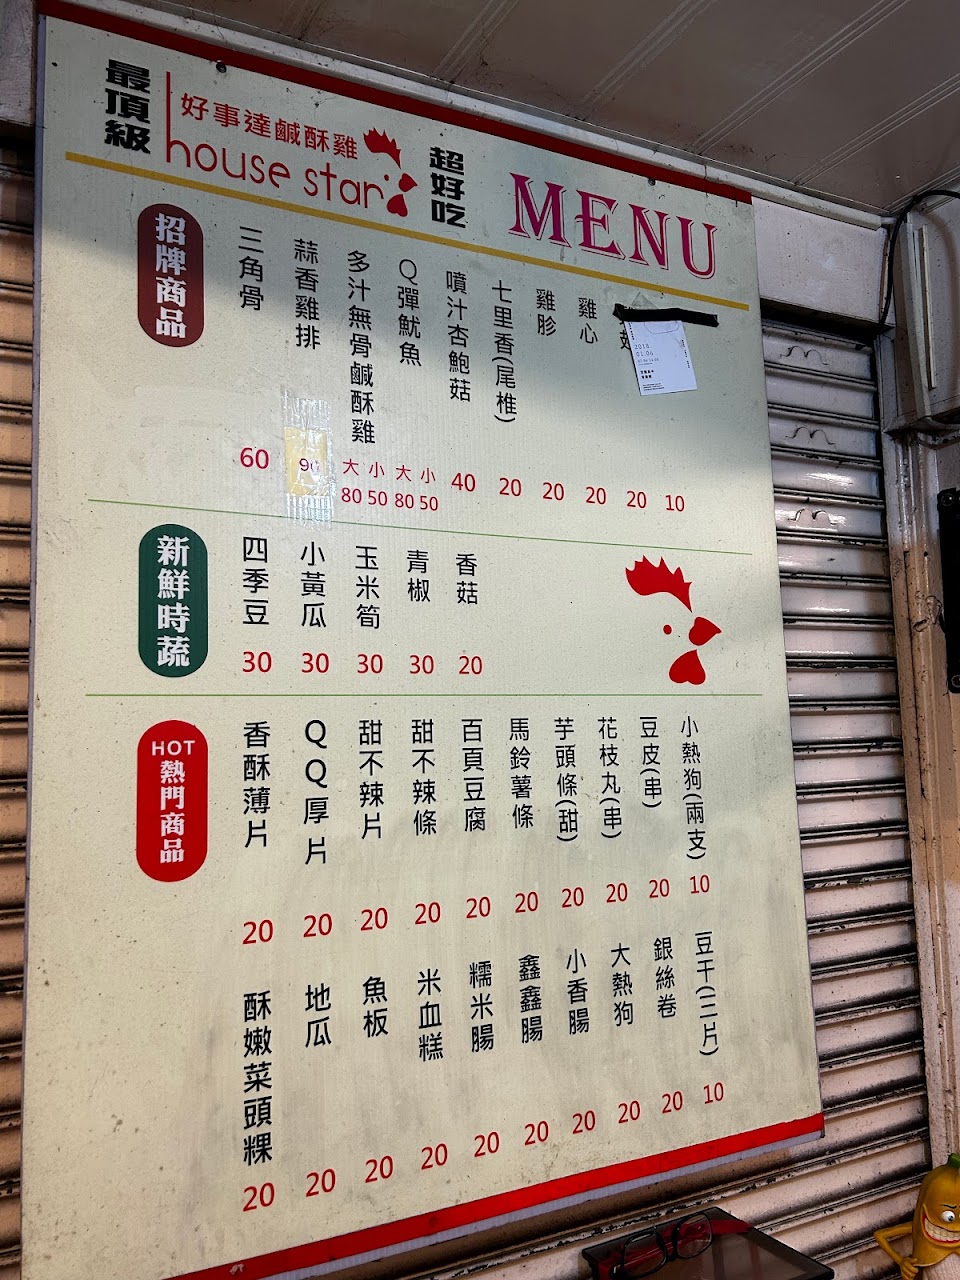 最頂級
好事達鹹酥雞
house star
超好吃
MENU
招牌商品
三角骨
蒜香雞排
多汁無骨鹹酥雞
Q彈魷魚
噴汁杏鮑菇
七里香(尾椎)
雞胗
雞心
60
90
大 小 大 小
80 50 80 50
40
20
20
20
20
10
2018
01.06
新鮮時蔬
四季豆
小黃瓜
玉米筍
青椒
香菇
30
30
30
30
20
HOT熱門商品
香酥薄片
QQ厚片
甜不辣片
甜不辣條
百頁豆腐
馬鈴薯條
芋頭條(甜)
花枝丸(串)
豆皮(串)
小熱狗(兩支)
20
20
20
20
20
20
20
20
20
10
酥嫩菜頭粿
地瓜
魚板
米血糕
糯米腸
鑫鑫腸
小香腸
大熱狗
銀絲卷
豆干(三片)
20
20
20
20
20
20
20
20
20
10